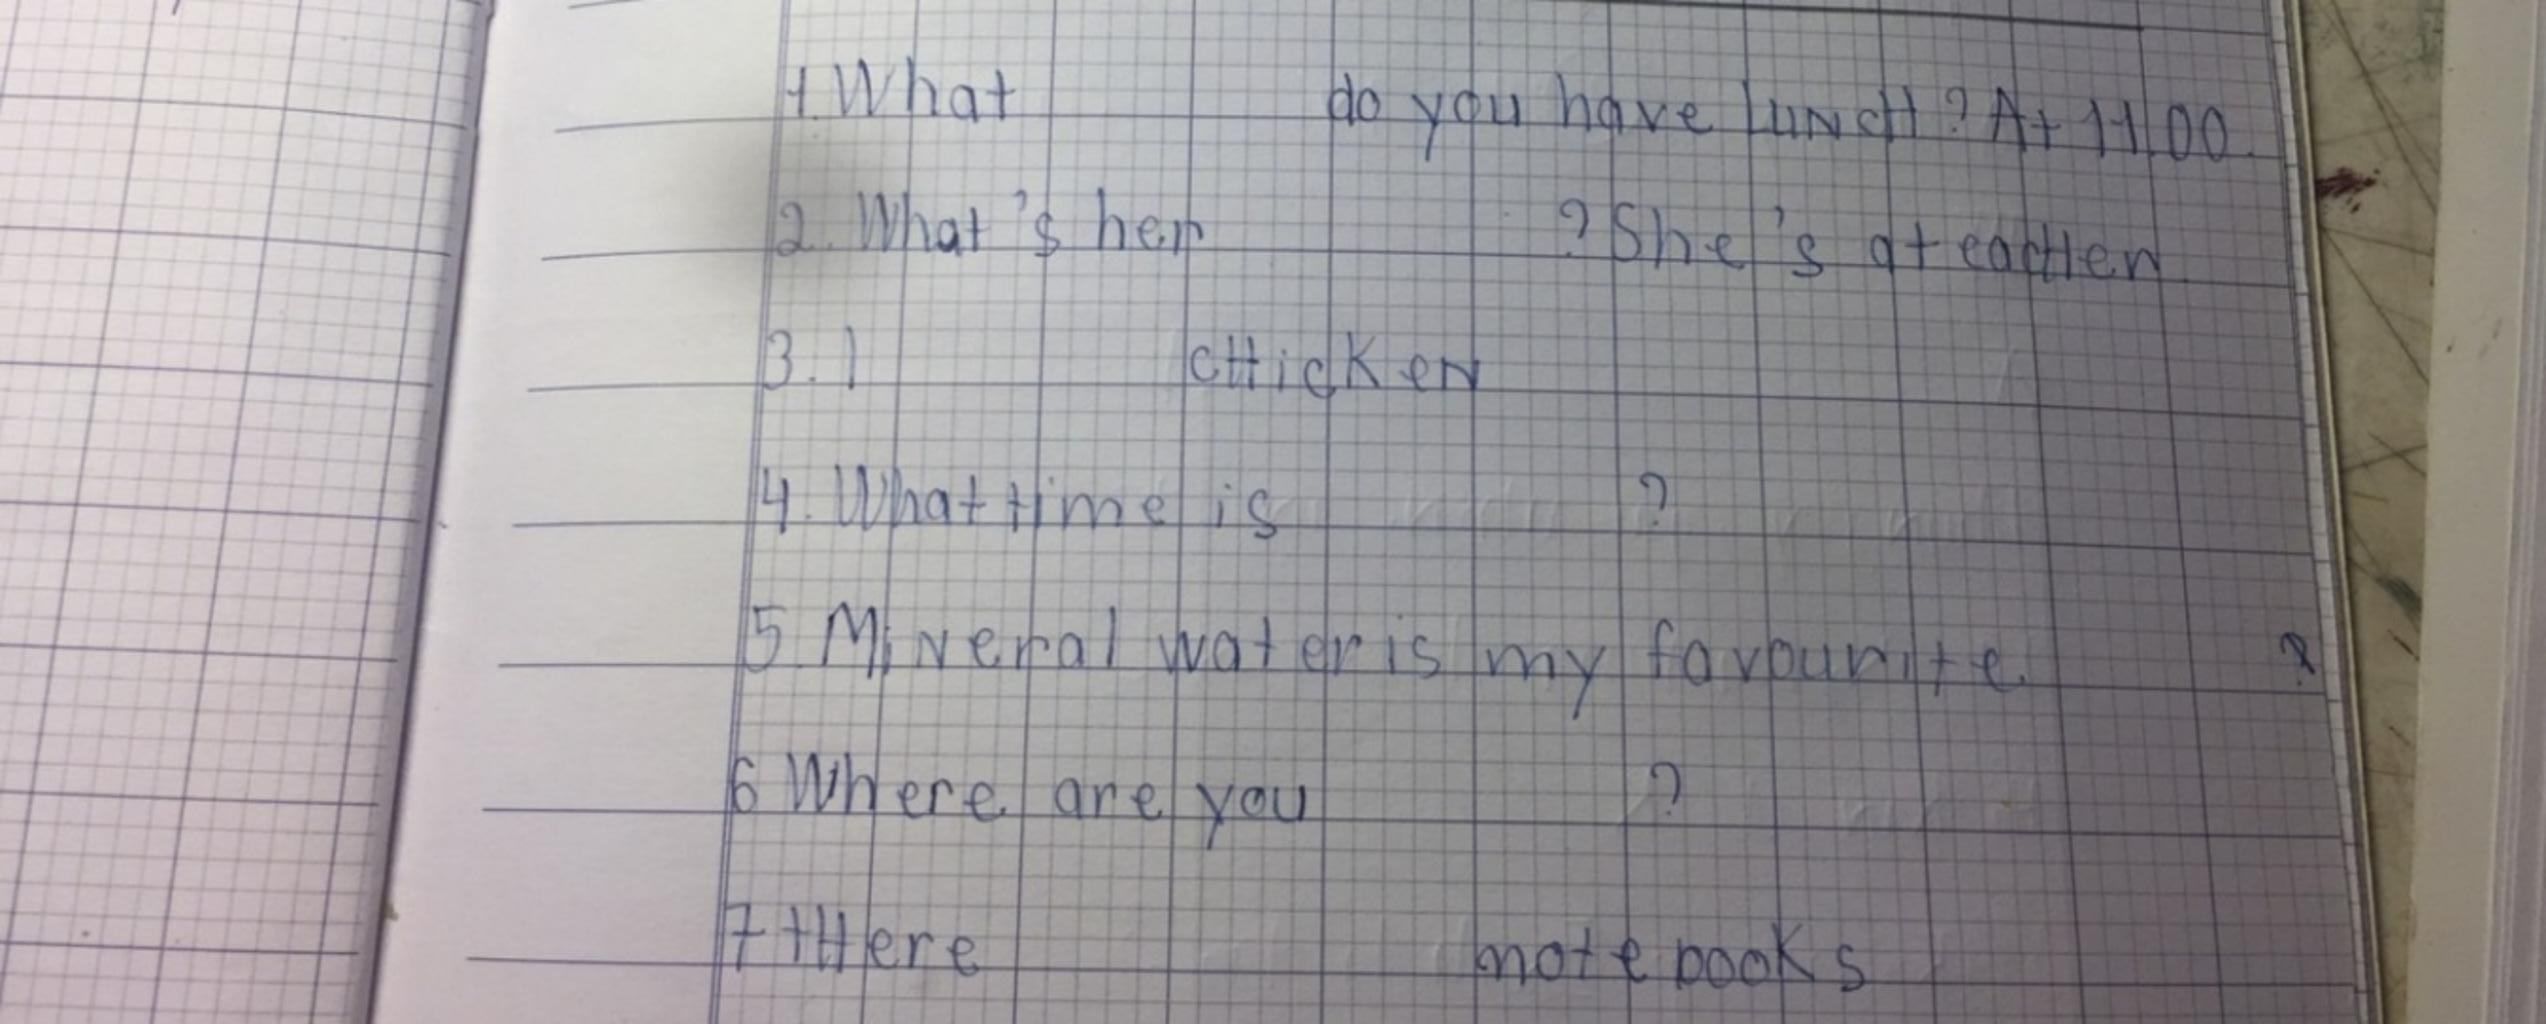 1. What do you have lunch? At 11.00
2. What's her ? She's a teacher
3. I chicken
4. What time is ?
5 Mineral water is my favourite ?
6 Where are you ?
7 there notebooks